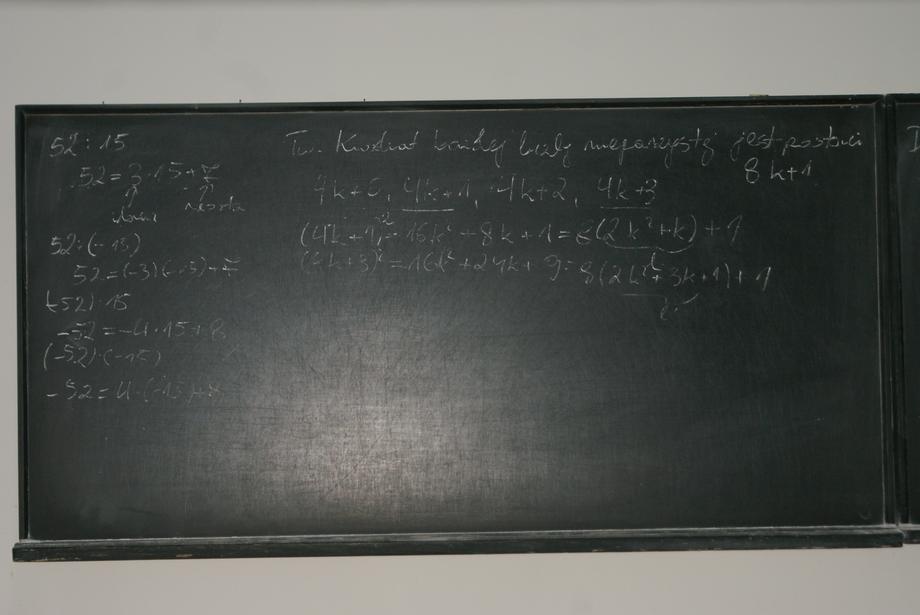 52 : 15
52 = 3 · 15 + 7
iloraz reszta
52 : (-15)
52 = (-3)(-15) + 7
(-52) : 15
-52 = -4 · 15 + 8
(-52) : (-15)
-52 = 4 · (-15) + 8
Tw. Kwadrat każdej liczby nieparzystej jest postaci
8k+1
4k+0, 4k+1, 4k+2, 4k+3
(4k+1)² = 16k² + 8k + 1 = 8(2k²+k) + 1
(4k+3)² = 16k² + 24k + 9 = 8(2k²+3k+1) + 1